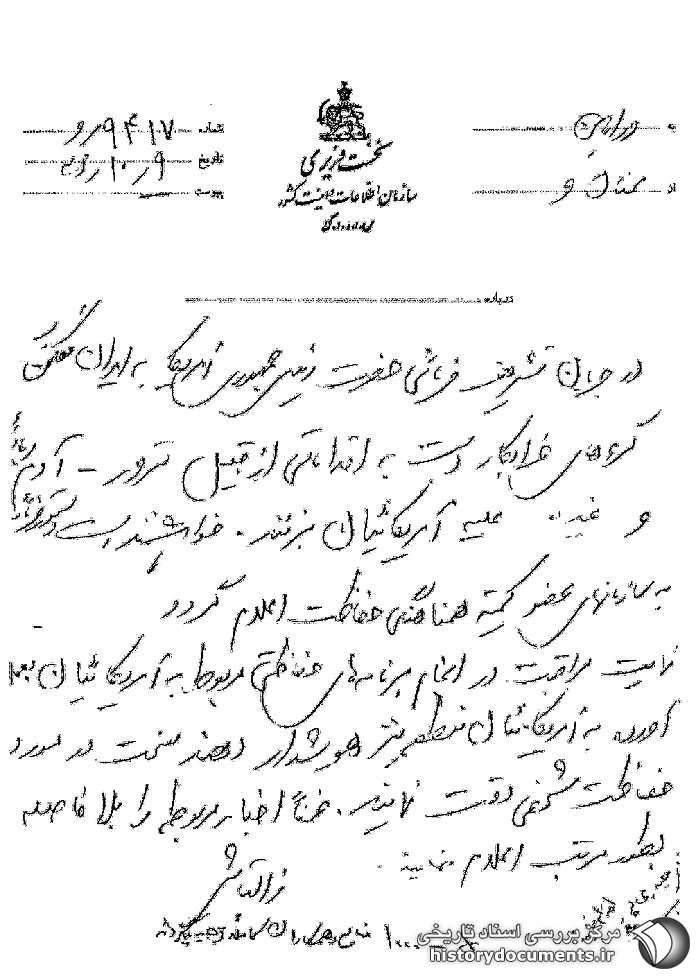 نخست وزیری
سازمان اطلاعات و امنیت کشور
به
از
شماره ۹۴۱۷
تاریخ
پیوست
درباره
در جریان تشریف فرمائی حضرت رئیس جمهوری آمریکا به ایران ممکن
گروههای خرابکار دست به اقداماتی از قبیل ترور - آدم
و غیره علیه آمریکائیان بزنند. خواهشمند است دستور فرمائید
به سازمانهای عضو کمیته هماهنگی حفاظت اعلام گردد
نهایت مراقبت در انجام برنامه‌های حفاظتی مربوط به آمریکائیان بعمل
آورند به آمریکائیان هوشدار دهند در مورد
حفاظت شخصی دقت نمایند. ضمناً اخبار مربوطه را بلافاصله
بطور مرتب اعلام نمایند.
مرکز بررسی اسناد تاریخی
historydocuments.ir